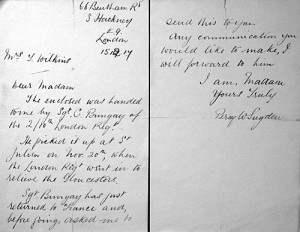 66 Bentham Rd
S Hackney
E.9.
London
Mrs T Wilkins
Dear Madam
The enclosed was handed
to me by Sgt C. Bungay of
the 2/10th London Regt.
He picked it up at St
Julien on Nov. 20th, when
the London Regt went in to
relieve the Gloucesters.
Sgt Bungay has just
returned to France and,
before going, asked me to
send this to you.
Any communication you
would like to make, I
will forward to him
I am, Madam
Yours Truly
Percy W Sugden